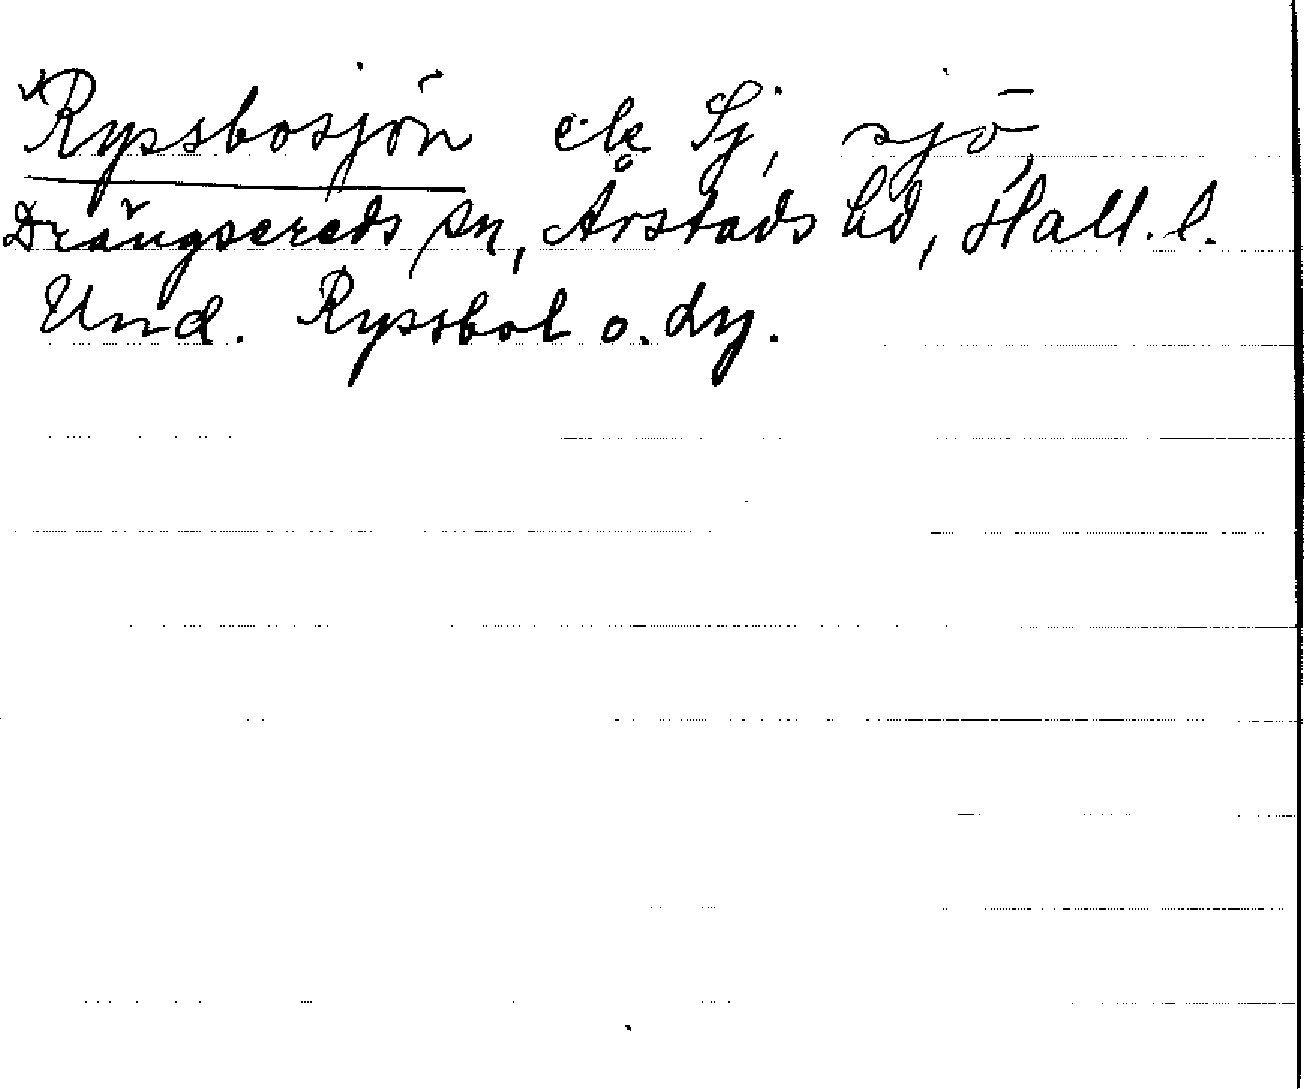 Ryssbosjön el. Sj, sjö,
Drängsereds sn, Årstads hd, Hall. l.
Und. Ryssbol o. dy.